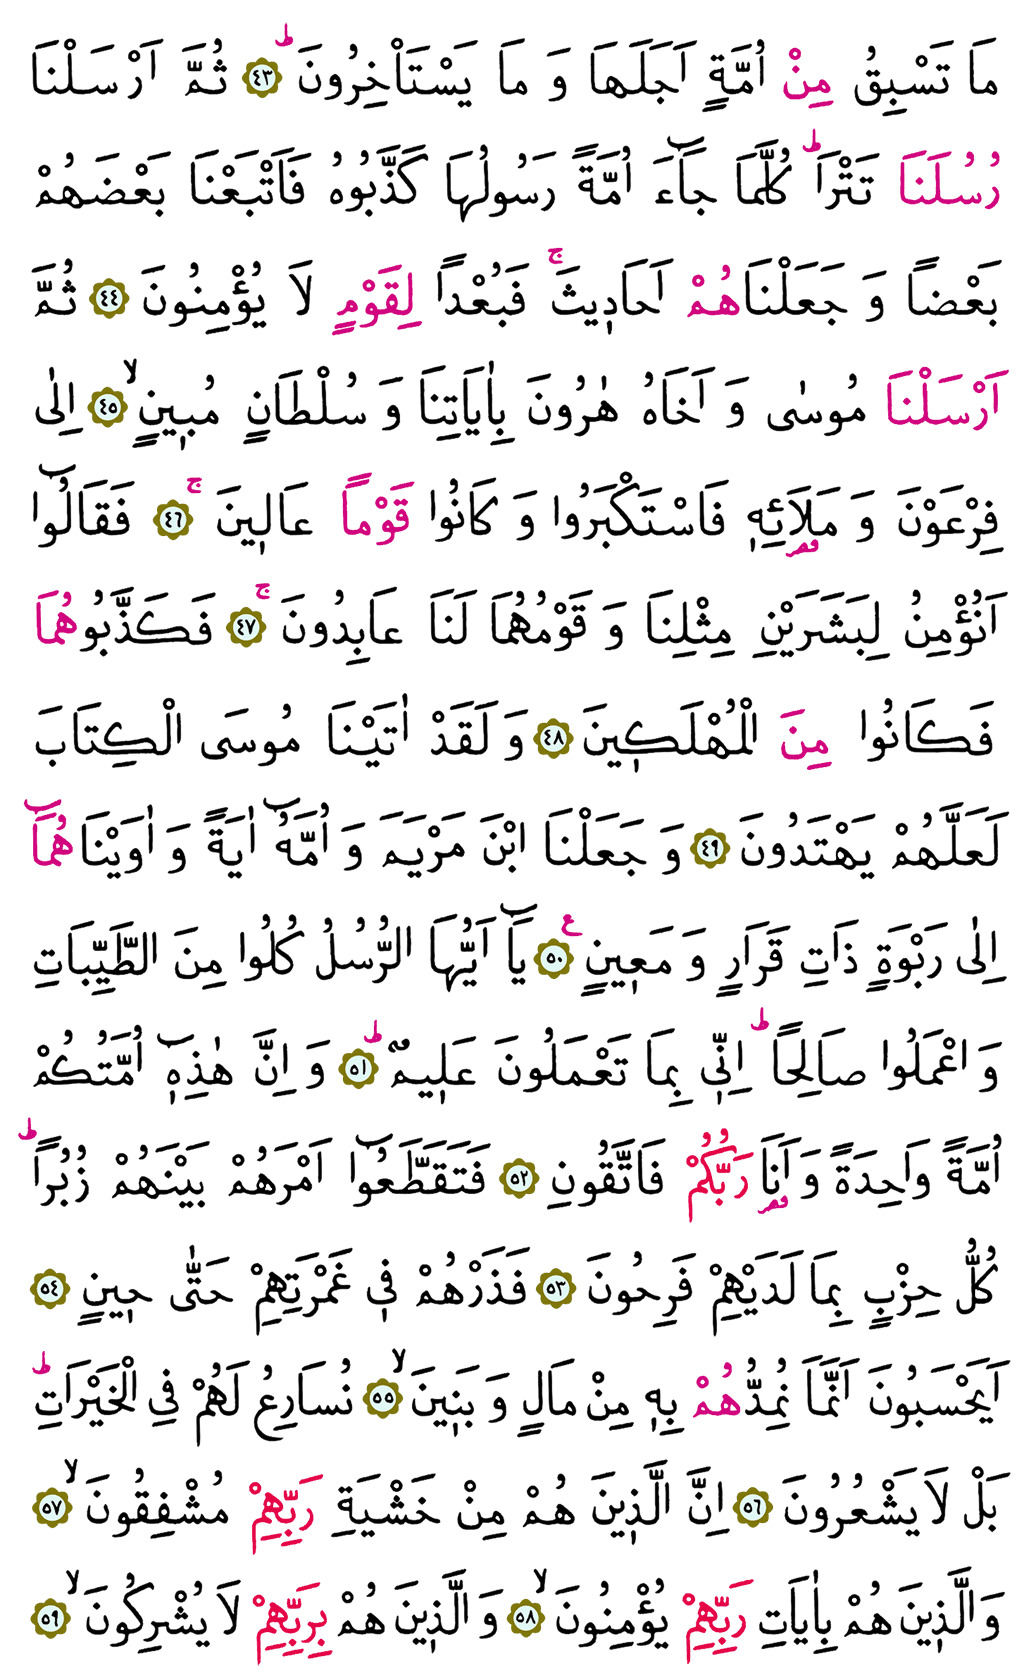 مَا تَسْبِقُ مِنْ اُمَّةٍ اَجَلَهَا وَ مَا يَسْتَاْخِرُونَ ؕ ﴿٤٣﴾ ثُمَّ اَرْسَلْنَا
رُسُلَنَا تَتْرَا ؕ كُلَّمَا جَٓاءَ اُمَّةً رَسُولُهَا كَذَّبُوهُ فَاَتْبَعْنَا بَعْضَهُمْ
بَعْضاً وَ جَعَلْنَاهُمْ اَحَاد۪يثَ ۚ فَبُعْداً لِقَوْمٍ لَا يُؤْمِنُونَ ﴿٤٤﴾ ثُمَّ
اَرْسَلْنَا مُوسٰى وَ اَخَاهُ هٰرُونَ بِاٰيَاتِنَا وَ سُلْطَانٍ مُب۪ينٍ ۙ ﴿٤٥﴾ اِلٰى
فِرْعَوْنَ وَ مَلَا۬ئِه۪ فَاسْتَكْبَرُوا وَ كَانُوا قَوْماً عَال۪ينَ ۚ ﴿٤٦﴾ فَقَالُٓوا
اَنُؤْمِنُ لِبَشَرَيْنِ مِثْلِنَا وَ قَوْمُهُمَا لَنَا عَابِدُونَ ۚ ﴿٤٧﴾ فَكَذَّبُوهُمَا
فَكَانُوا مِنَ الْمُهْلَك۪ينَ ﴿٤٨﴾ وَ لَقَدْ اٰتَيْنَا مُوسَى الْكِتَابَ
لَعَلَّهُمْ يَهْتَدُونَ ﴿٤٩﴾ وَ جَعَلْنَا ابْنَ مَرْيَمَ وَ اُمَّهُٓ اٰيَةً وَ اٰوَيْنَاهُمَٓا
اِلٰى رَبْوَةٍ ذَاتِ قَرَارٍ وَ مَع۪ينٍ ﴿٥٠﴾ ع يَٓا اَيُّهَا الرُّسُلُ كُلُوا مِنَ الطَّيِّبَاتِ
وَ اعْمَلُوا صَالِحاً ؕ اِنّ۪ي بِمَا تَعْمَلُونَ عَل۪يمٌ ؕ ﴿٥١﴾ وَ اِنَّ هٰذِه۪ٓ اُمَّتُكُمْ
اُمَّةً وَاحِدَةً وَ اَنَا۬ رَبُّكُمْ فَاتَّقُونِ ﴿٥٢﴾ فَتَقَطَّعُٓوا اَمْرَهُمْ بَيْنَهُمْ زُبُراً ؕ
كُلُّ حِزْبٍ بِمَا لَدَيْهِمْ فَرِحُونَ ﴿٥٣﴾ فَذَرْهُمْ ف۪ي غَمْرَتِهِمْ حَتّٰى ح۪ينٍ ﴿٥٤﴾
اَيَحْسَبُونَ اَنَّمَا نُمِدُّهُمْ بِه۪ مِنْ مَالٍ وَ بَن۪ينَ ۙ ﴿٥٥﴾ نُسَارِعُ لَهُمْ فِي الْخَيْرَاتِ ؕ
بَلْ لَا يَشْعُرُونَ ﴿٥٦﴾ اِنَّ الَّذ۪ينَ هُمْ مِنْ خَشْيَةِ رَبِّهِمْ مُشْفِقُونَ ۙ ﴿٥٧﴾
وَ الَّذ۪ينَ هُمْ بِاٰيَاتِ رَبِّهِمْ يُؤْمِنُونَ ۙ ﴿٥٨﴾ وَ الَّذ۪ينَ هُمْ بِرَبِّهِمْ لَا يُشْرِكُونَ ۙ ﴿٥٩﴾